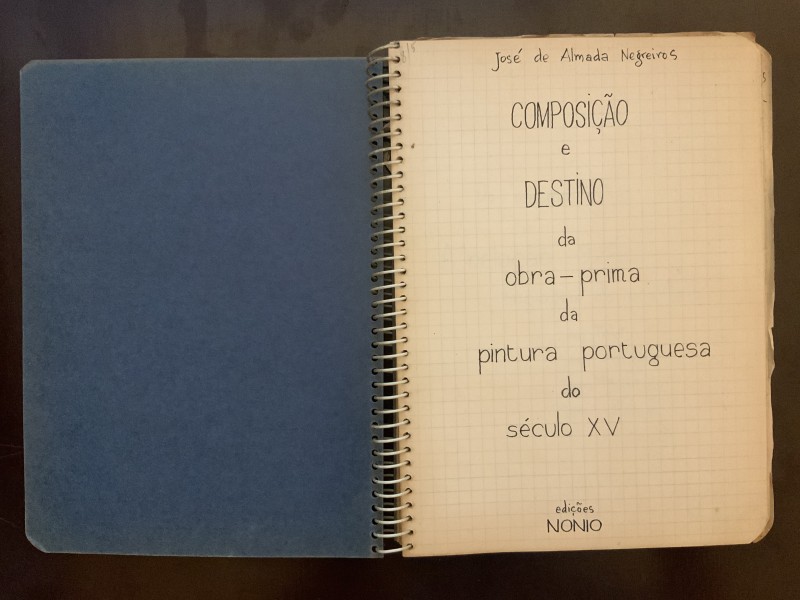 José de Almada Negreiros
COMPOSIÇÃO
e
DESTINO
da
obra-prima
da
pintura portuguesa
do
século XV
edições
NONIO